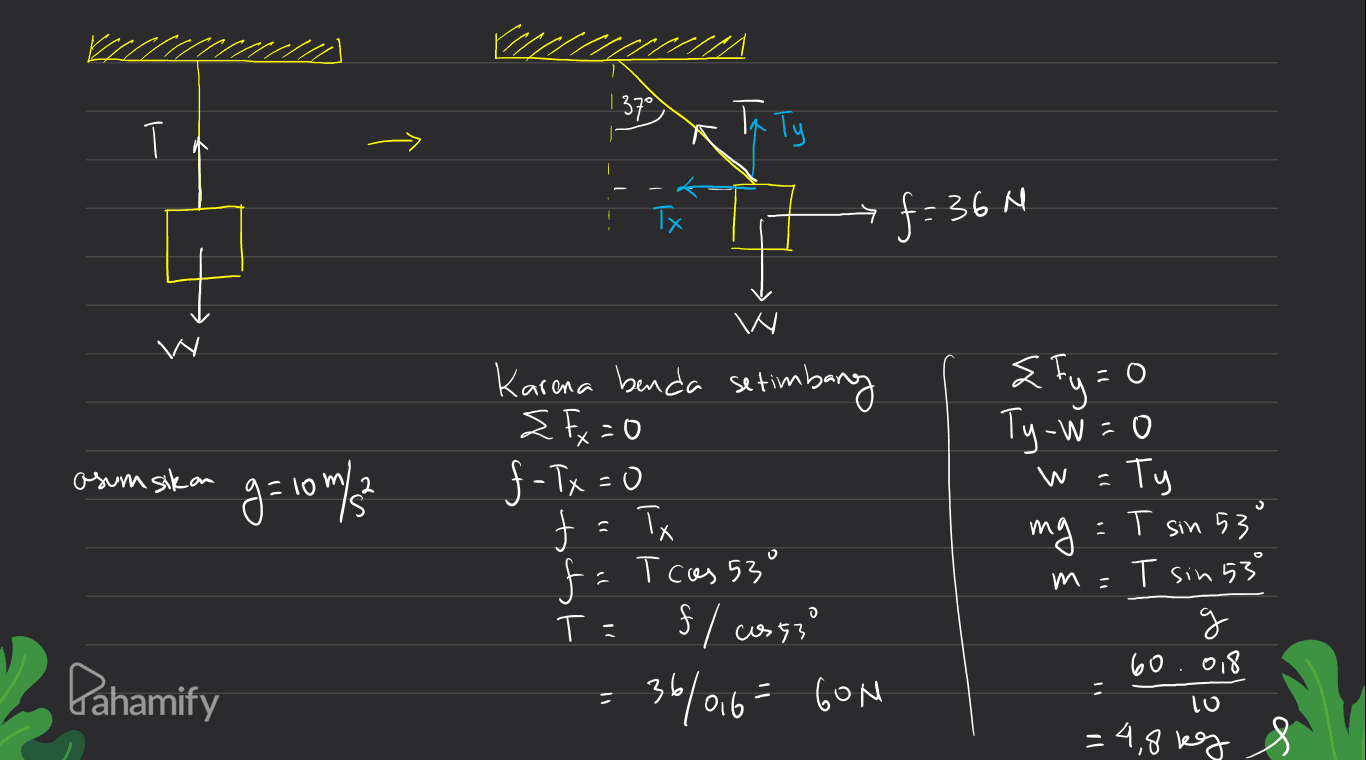 T
W
37°
T
Ty
Tx
f = 36 N
W
asumsikan g = 10 m/s²
Karena benda setimbang
Σ Fx = 0
f - Tx = 0
f = Tx
f = T cos 53°
T = f / cos 53°
= 36/0,6 = 60 N
Σ Fy = 0
Ty - W = 0
W = Ty
mg = T sin 53°
m = T sin 53°
g
= 60 . 0,8
10
= 4,8 kg
Pahamify